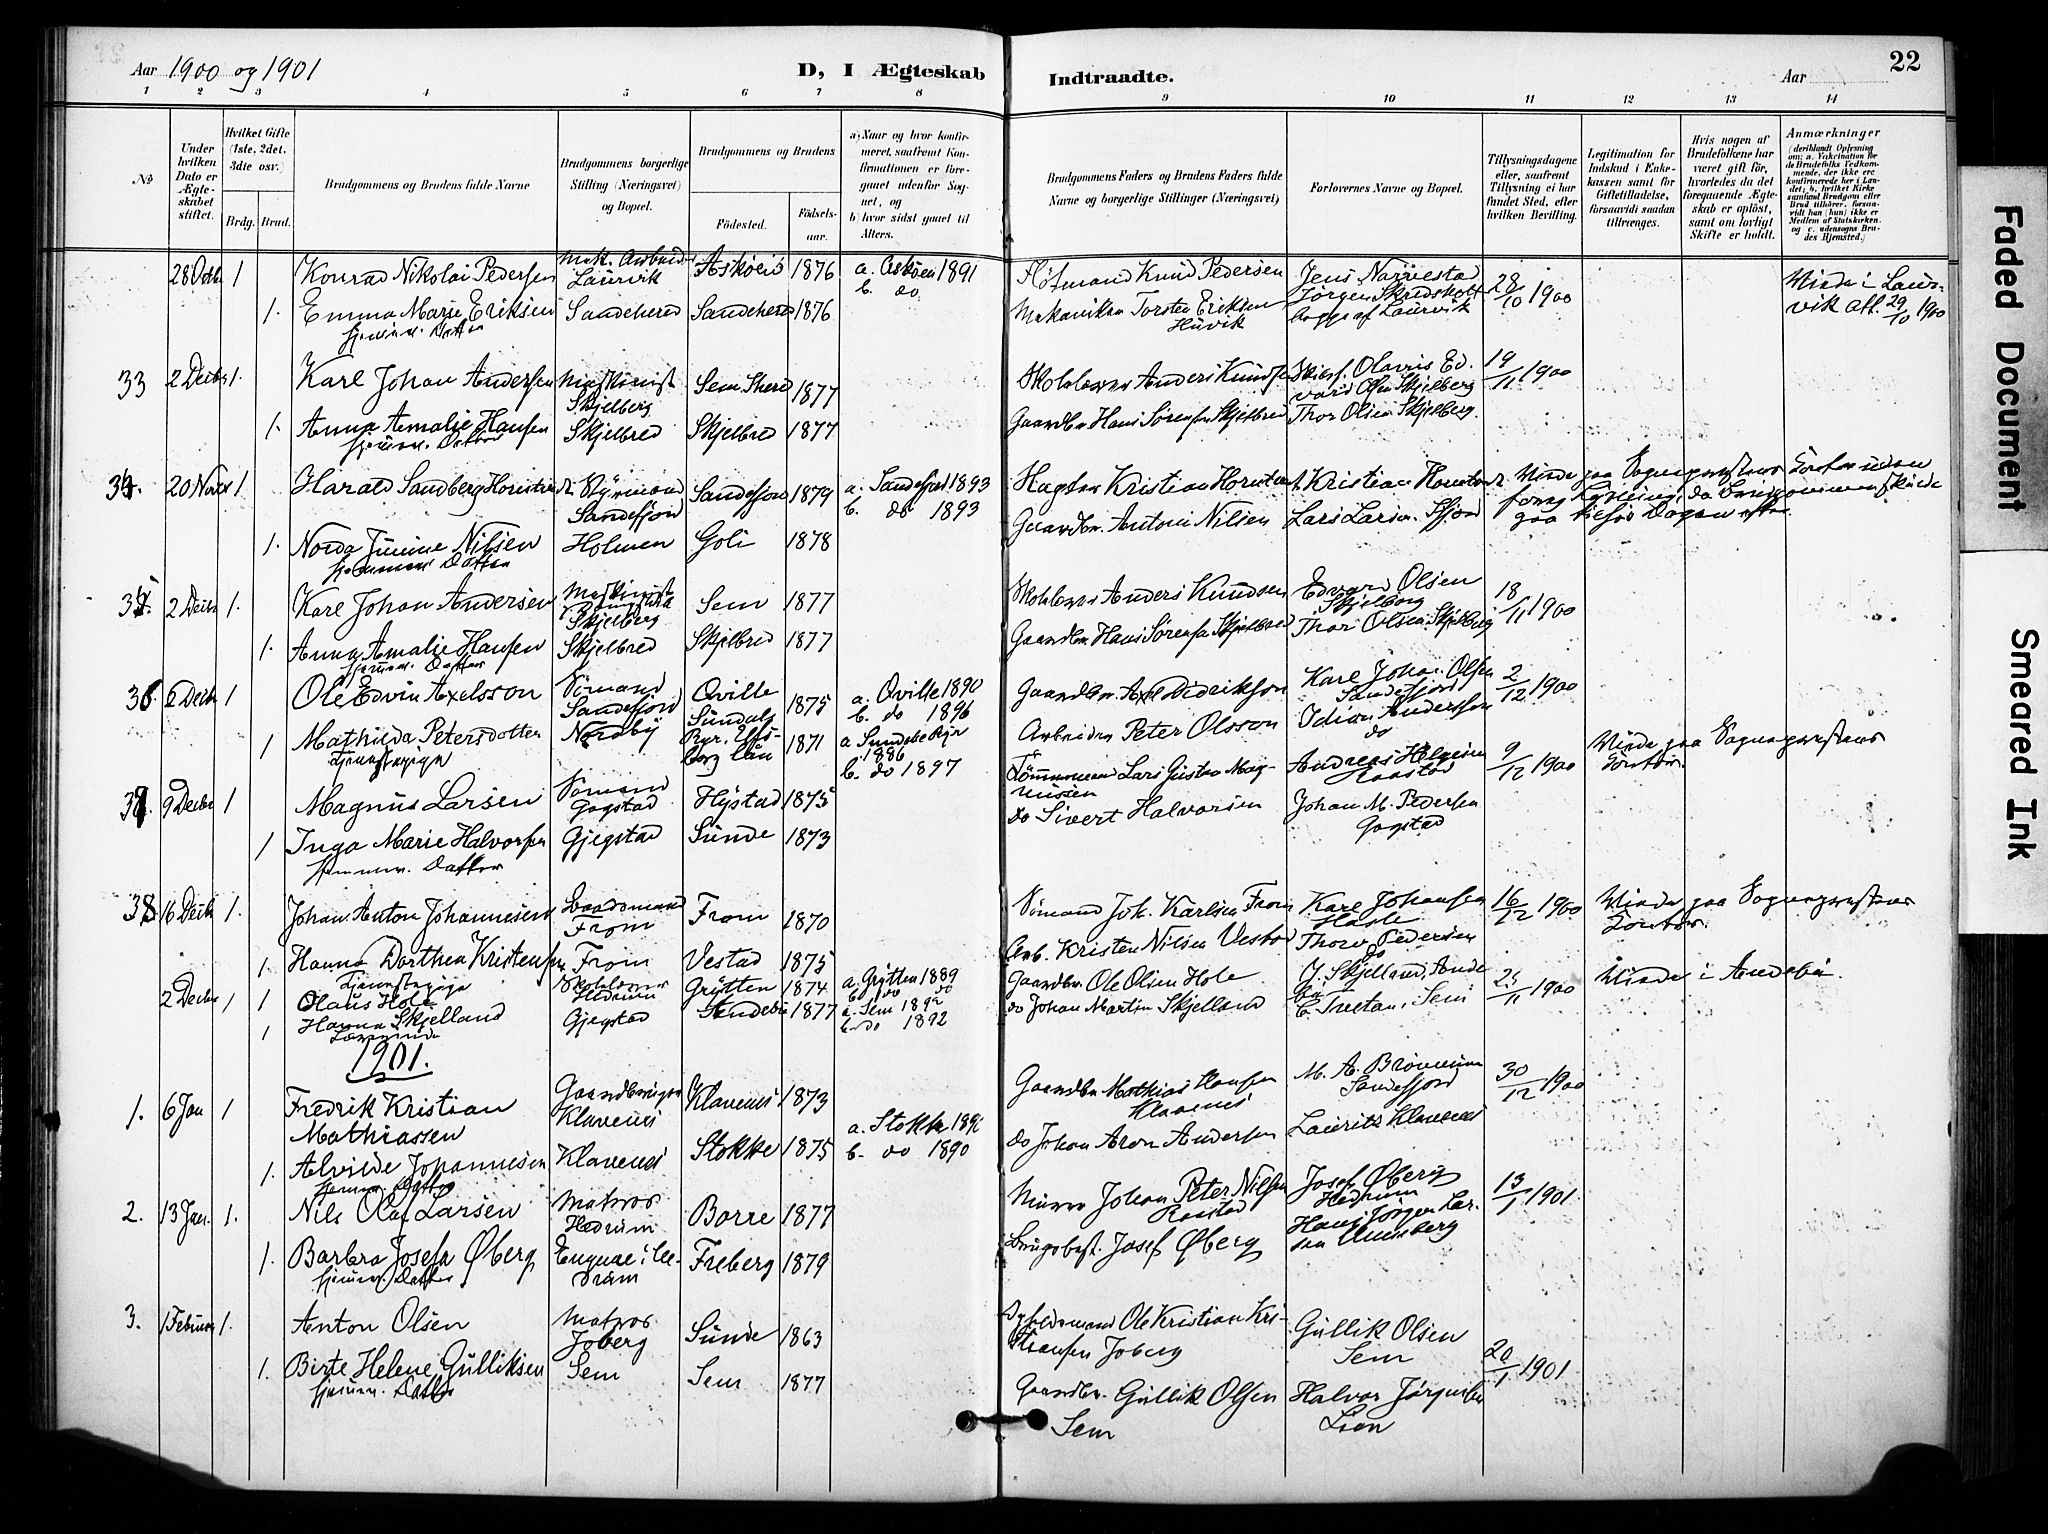 Aar 1900 og 1901
D, I Ægteskab Indtraadte.
Aar
22
1 2 3 4 5 6 7 8 9 10 11 12 13 14
No
Under hvilken Dato er Ægteskabet stiftet.
Hvilket Gifte (1ste, 2det, 3die osv.)
Brdg. Brud.
Brudgommens og Brudens fulde Navne
Brudgommens borgerlige Stilling (Næringsvei) og Bopæl.
Brudgommens og Brudens
Fødested.
Fødselsaar.
a) Naar og hvor konfirmeret, saafremt Konfirmationen er foregaaet udenfor Sognet, og
b) hvor sidst gaaet til Alters.
Brudgommens Faders og Brudens Faders fulde Navne og borgerlige Stillinger (Næringsvei)
Forlovernes Navne og Bopæl.
Tillysningsdagene eller, saafremt Tillysning ei har fundet Sted, efter hvilken Bevilling.
Legitimation for Indskud i Enkekassen samt for Giftetilladelse, forsaavidt saadan tiltrænges.
Hvis nogen af Brudefolkene har været gift før, hvorledes da det foregaaende Ægteskab er opløst, samt om lovligt Skifte er holdt.
Anmærkninger (deriblandt Oplysning om: a. Vakcination for de Brudefolks Vedkommende, der ikke ere konfirmerede her i Landet; b. hvilket Kirkesamfund Brudgom eller Brud tilhører, forsaavidt han (hun) ikke er Medlem af Statskirken, og c. udensogns Brudes Hjemsted.)
1 Konrad Nikolai Pedersen Laurvik Askøen 1876 a. Askøen 1891 b. do
Knud Pedersen 28/10 1900
1. Emma Marie Eriksen Sandeherred Sandeherred 1876
hjemmev. Datter
Torsten Eriksen Laurvik
Viede i Laurvik Att. 29/10 1900
33 2 Decbr 1. Karl Johan Andersen Maskinist Skjelberg Sem 1877
Anders Knudsen 19/11 1900
1. Anna Amalie Hansen Skjelbred Skjelbred 1877
hjemmev. Datter
Gaardbr Hans Sørensen Skjelbred Thor Olsen Skjelberg.
34. 20 Novbr 1 Harald Sandberg Sandefjord Sandefjord 1879 a. Sandefjord 1893 b. do 1893
Kristian
1. Nilsen Holmen Goli 1878
hjemmev. Datter
Gaardbr. Anton Nilsen Lars Larsen
35. 2 Decbr 1. Karl Johan Andersen Maskinist Skjelberg Sem 1877
Anders Knudsen Edvard Olsen Skjelberg 18/11 1900
1. Anna Amalie Hansen Skjelbred Skjelbred 1877
hjemmev. Datter
Gaardbr. Hans Sørensen Skjelbred Thor Olsen Skjelberg
36 2 Decbr 1 Ole Edvin Axelsson Sømand Sandefjord Qville 1875 a. Qville 1890 b. do 1896
Gaardbr. Axel Didrikson Karl Johan Olsen Sandefjord 2/12 1900
1 Mathilda Petersdotter Nordby Sundals 1871 a 1886 b. do 1897
Tjenestepige
Arbeider Peter Olsson Andersson do
37. 9 Decbr 1 Magnus Larsen Sømand Gogstad Hystad 1875
Lars Gustav Magnussen Andreas Raastad 9/12 1900 Viede paa Sognepræstens Kontor.
1 Inga Marie Halvorsen Gjegstad Sunde 1873
hjemmev. Datter
do Sivert Halvorsen Johan M. Pedersen Gogstad
38 16 Decbr 1. Johan Anton Johannesen From From 1870
Sømand Joh. Karlsen From Karl Johansen Hasle 16/12 1900 Viede paa Sognepræstens Kontor.
1. Hanna Dorthea Kristensen From Vestad 1875
Tjenestepige
Arb. Kristen Nilsen Vestad Thorv. Pedersen do
2 Decbr 1 Hole Hedrum Grytten 1874 a. Grytten 1889 b. do
Gaardbr Ole Olsen Hole Skjelland, Andebu 25/11 1900 Viede i Andebu.
1 Hanna Skjelland Gjegstad Andebu 1877 a. Sem 1892 b. do 1892
Lærerinde
do Johan Martin Skjelland Tvetan, Sem
1901.
1. 6 Jan 1 Fredrik Kristian Mathiassen Gaardbruger Klavenes Klavenes 1873
Gaardbr Mathias Hansen Klavenes M. A. Sandefjord 30/12 1900
1. Alvilde Johannesen Klavenes Stokke 1875 a. Stokke 1890 b. do 1890
hjemmev. Datter
do Johan Aron Andersen Lauritz Klavenes
2. 13 Jan. 1. Nils Olaf Larsen Matros Hedrum Borre 1877
Murer Johan Peter Nilsen Raastad Josef Øberg Hedrum 13/1 1901.
1. Barbra Josefa Øberg i Hedrum Freberg 1879
hjemmev. Datter
Josef Øberg Hans Jørgen Larsen
3. 1 Februar 1. Anton Olsen Matros Joberg Sunde 1863
Ole Kristian Kristiansen Joberg Gullik Olsen Sem 20/1 1901
1. Birte Helene Gulliksen Sem Sem 1877
hjemmev. Datter
Gaardbr. Gullik Olsen Sem Halvor Jørgensen Lien
Faded Document
Smeared Ink